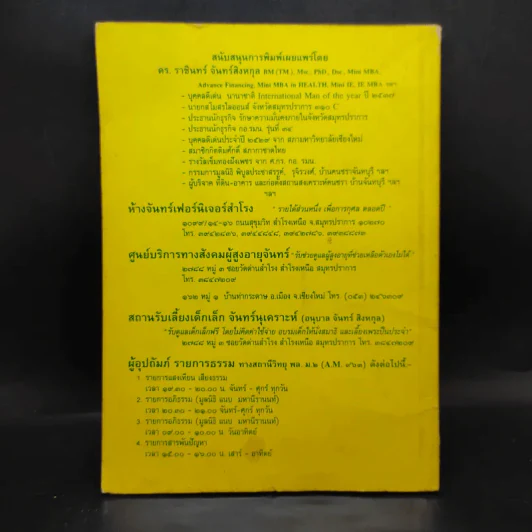 สนับสนุนการพิมพ์เผยแพร่โดย
ดร. ราชินทร์ จันทร์สิงหกุล BM (TM.), Msc, PhD, Dsc, Mini MBA,
Advance Financing, Mini MBA in HEALTH, Mini IE, IE MBA ฯลฯ
- บุคคลดีเด่น นานาชาติ International Man of the year ปี
- นายกสโมสรไลออนส์ จังหวัดสมุทรปราการ ๓๑๐ C
- ประธานนักธุรกิจ รักษาความมั่นคงภายในจังหวัดสมุทรปราการ
- ประธานนักธุรกิจ กอ.รมน. รุ่นที่
- บุคคลดีเด่นประจำปี ๒๕๒๙ จาก สภามหาวิทยาลัยเชียงใหม่
- สมาชิกกิตติมศักดิ์ สภากาชาดไทย
- รางวัลเข็มทองฝีเพชร จาก ศ.กร. กอ. รมน.
- กรรมการมูลนิธิ พิบูลประชาสรรค์, รุจิรวงศ์, บ้านคนชราจันทบุรี ฯลฯ
- ผู้บริจาค ที่ดิน-อาคาร และก่อตั้งสถานสงเคราะห์คนชรา บ้านจันทบุรี ฯลฯ
ฯลฯ
ห้างจันทร์เฟอร์นิเจอร์สำโรง " รายได้ส่วนหนึ่ง เพื่อการกุศล ตลอดปี "
๑๐๙๙/๑๔-๑๖ ถนนสุขุมวิท สำโรงเหนือ จ.สมุทรปราการ ๑๐๒๗๐
โทร.
ศูนย์บริการทางสังคมผู้สูงอายุจันทร์ "รับช่วยดูแลผู้สูงอายุที่ช่วยเหลือตัวเองไม่ได้"
๒๗๘๘ หมู่ ๓ ซอยวัดด่านสำโรง สำโรงเหนือ สมุทรปราการ
โทร. ๓๘๔๗๒๐๙
หมู่ ๑ บ้านท่ากระดาษ อ.เมือง จ.เชียงใหม่ โทร (๐๕๓)
สถานรับเลี้ยงเด็กเล็ก จันทร์นุเคราะห์ (อนุบาล จันทร์ สิงหกุล)
"รับดูแลเด็กเล็กฟรี โดยไม่คิดค่าใช้จ่าย อบรมเด็กให้นั่งสมาธิ และเลี้ยงพระเป็นประจำ"
๒๗๘๘ หมู่ ๓ ซอยวัดด่านสำโรง สำโรงเหนือ สมุทรปราการ โทร. ๓๘๔๗๒๐๙
ผู้อุปถัมภ์ รายการธรรม ทางสถานีวิทยุ พล. ม.๒ (A.M. ๙๖๓) ดังต่อไปนี้.-
1. รายการแสงเทียน เสียงธรรม
เวลา ๑๙.๓๐ - ๒๐.๐๐ น. จันทร์ - ศุกร์ ทุกวัน
2. รายการอภิธรรม (มูลนิธิ แนบ มหานีรานนท์)
เวลา ๒๐.๓๐ - ๒๑.๐๐ จันทร์-ศุกร์ ทุกวัน
3. รายการอภิธรรม (มูลนิธิ แนบ มหานีรานนท์)
เวลา ๐๙.๐๐ - ๑๐.๐๐ น. วันอาทิตย์
4. รายการสารพันปัญหา
เวลา ๑๕.๐๐ - ๑๖.๐๐ น. เสาร์ - อาทิตย์